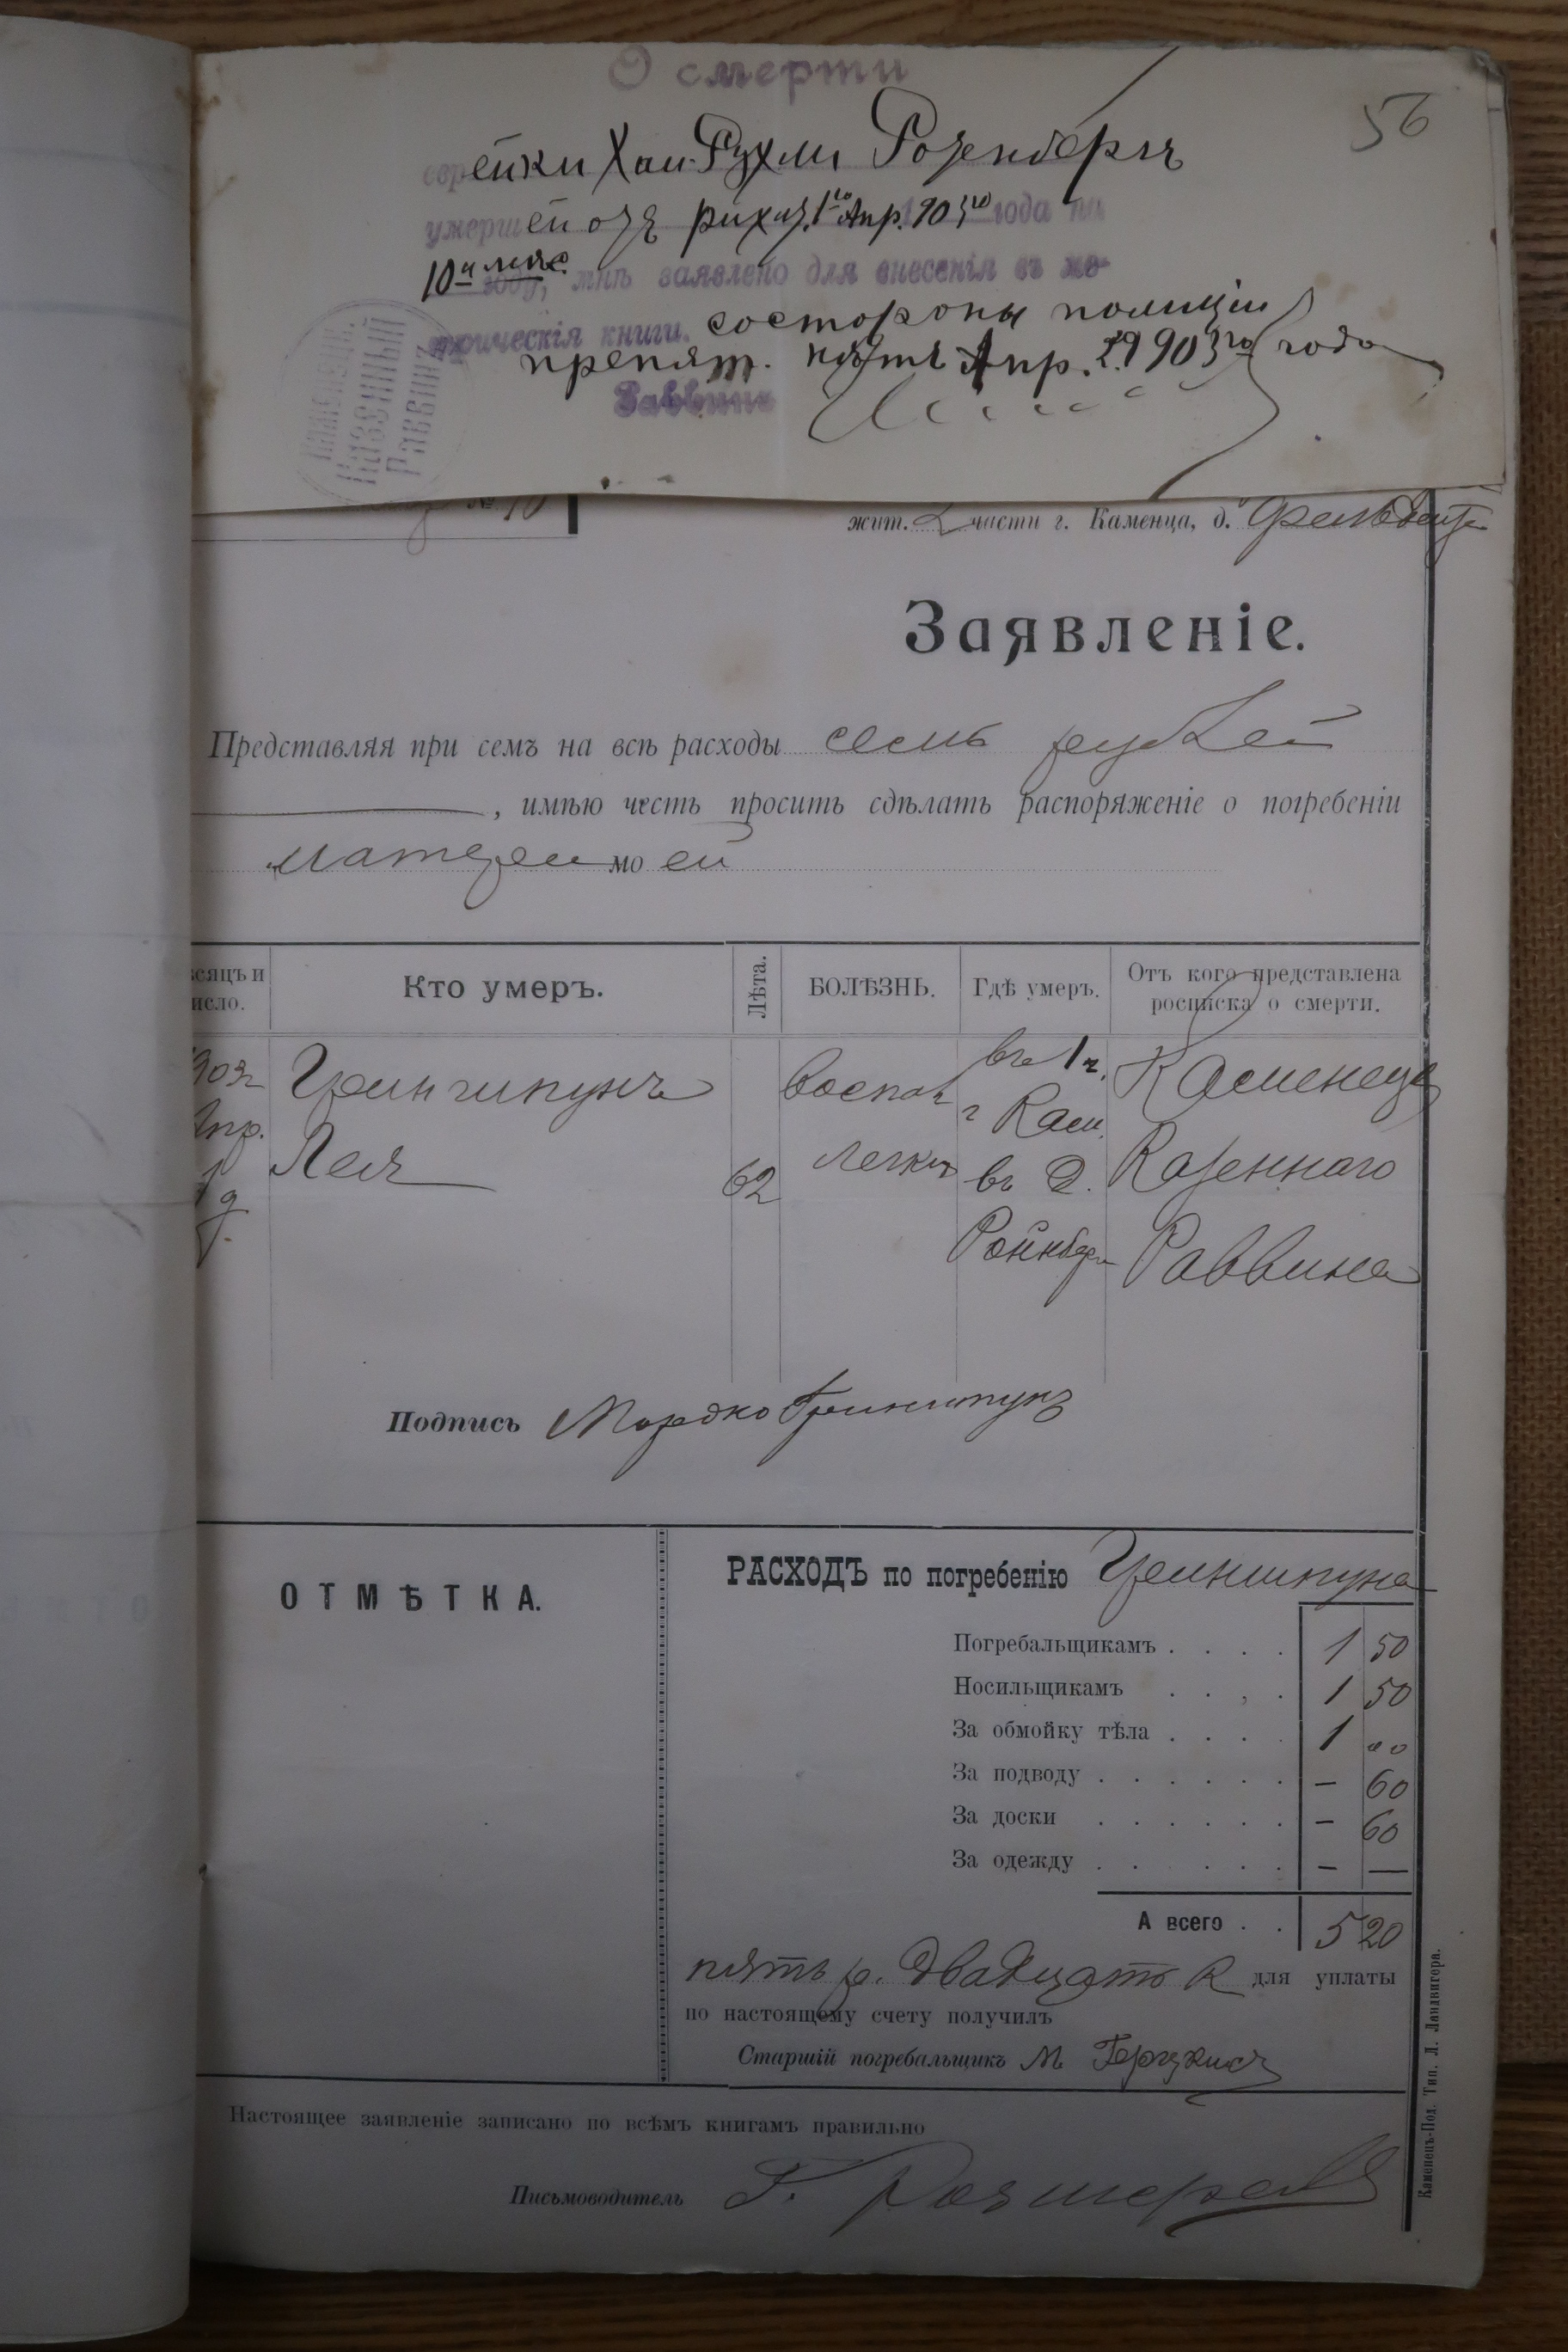 О смерти
56
еврейки Хаи-Рухли Розенбергъ
умершей отъ рахит. 1го Апр. 1903го года на
10й мѣс. году, мнѣ заявлено для внесенія въ ме-
трическія книги. со стороны полиціи
препят. нѣтъ Апр. 1903го года
Раввинъ
Казенный
Раввинъ
№ 10
жит. 2 части г. Каменца, д.
Заявленіе.
Представляя при семъ на всѣ расходы семь рублей
, имѣю честь просить сдѣлать распоряженіе о погребеніи
матери моей
ѣсяцъ и исло.
Кто умеръ.
Лѣта.
БОЛѢЗНЬ.
Гдѣ умеръ.
Отъ кого представлена росписка о смерти.
903 Гриншпунъ воспал въ 1 ч. Каменец
Апр. г Кам.
1 д. Лея 62 легких въ д. Казеннаго
Ройнберг Раввина
Подпись Мордко Гриншпунъ
ОТМѢТКА.
РАСХОДЪ по погребенію Гриншпуна
Погребальщикамъ . . . . 1 50
Носильщикамъ . . , . 1 50
За обмойку тѣла . . . . 1 00
За подводу . . . . . . – 60
За доски . . . . . . – 60
За одежду . . . . . . – —
А всего . . 5 20
пять р. двадцать к для уплаты
по настоящему счету получилъ
Старшій погребальщикъ М.
Настоящее заявленіе записано по всѣмъ книгамъ правильно
Письмоводитель Г.
Каменецъ-Под. Тип. Л. Ландвигера.